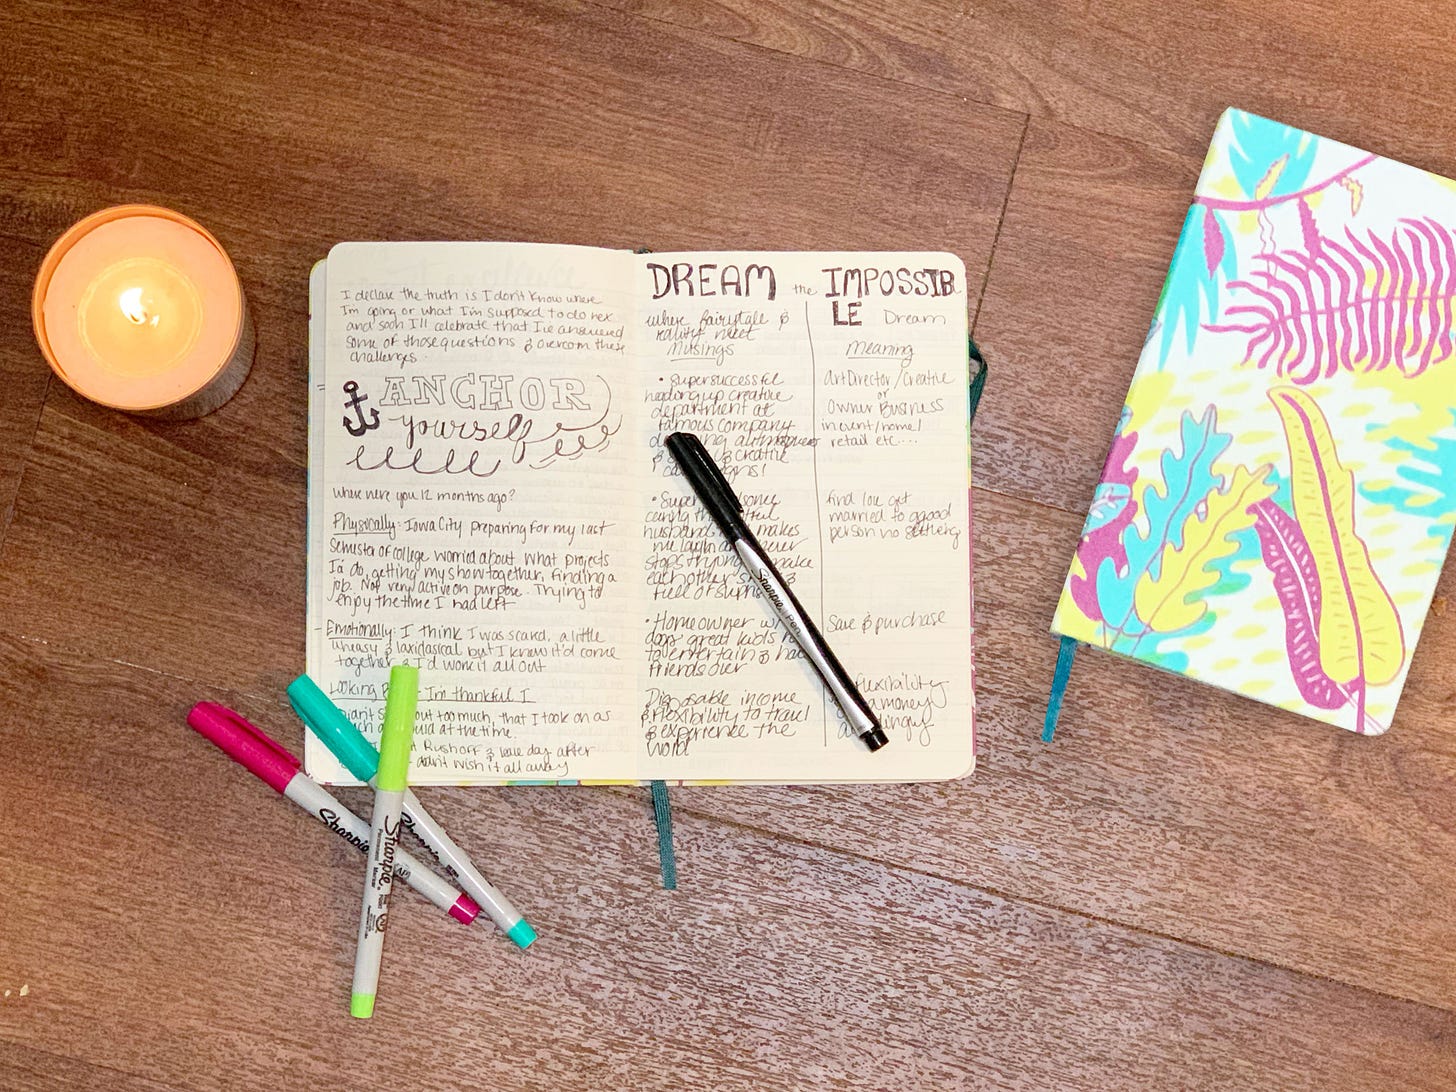 I declare the truth is I don't know where
I'm going or what I'm supposed to do next
and soon I'll celebrate that I've answered
some of those questions & overcom these
challenges.
ANCHOR
yourself
where were you 12 months ago?
Physically: Iowa City preparing for my last
Semester of college worried about what projects
I'd do, getting my show together, finding a
job. Not very active on purpose. Trying to
enjoy the time I had left
Emotionally: I think I was scared, a little
uneasy & but I knew it'd come
together & I'd work it all out
Looking I'm thankful I
out too much, that I took on as
at the time.
day after
didn't wish it all away
DREAM the IMPOSSIB
LE Dream
where fairytale &
reality meet
Musings
• Supersuccessful
heading up creative
department at
famous company
& creative
• Super
husband makes
me laugh never
stops trying make
each other
full of
• Homeowner w/
dogs great kids
to entertain &
friends over
Disposable income
& flexibility to travel
& experience the
world
Meaning
Art Director / Creative
or
Owner Business
in event/home/
retail etc....
find love get
married to a good
person no settling
Save & purchase
flexibility
money
Sharpie PEN
Sharpie
Sharpie
Sharpie
Permanent Marker